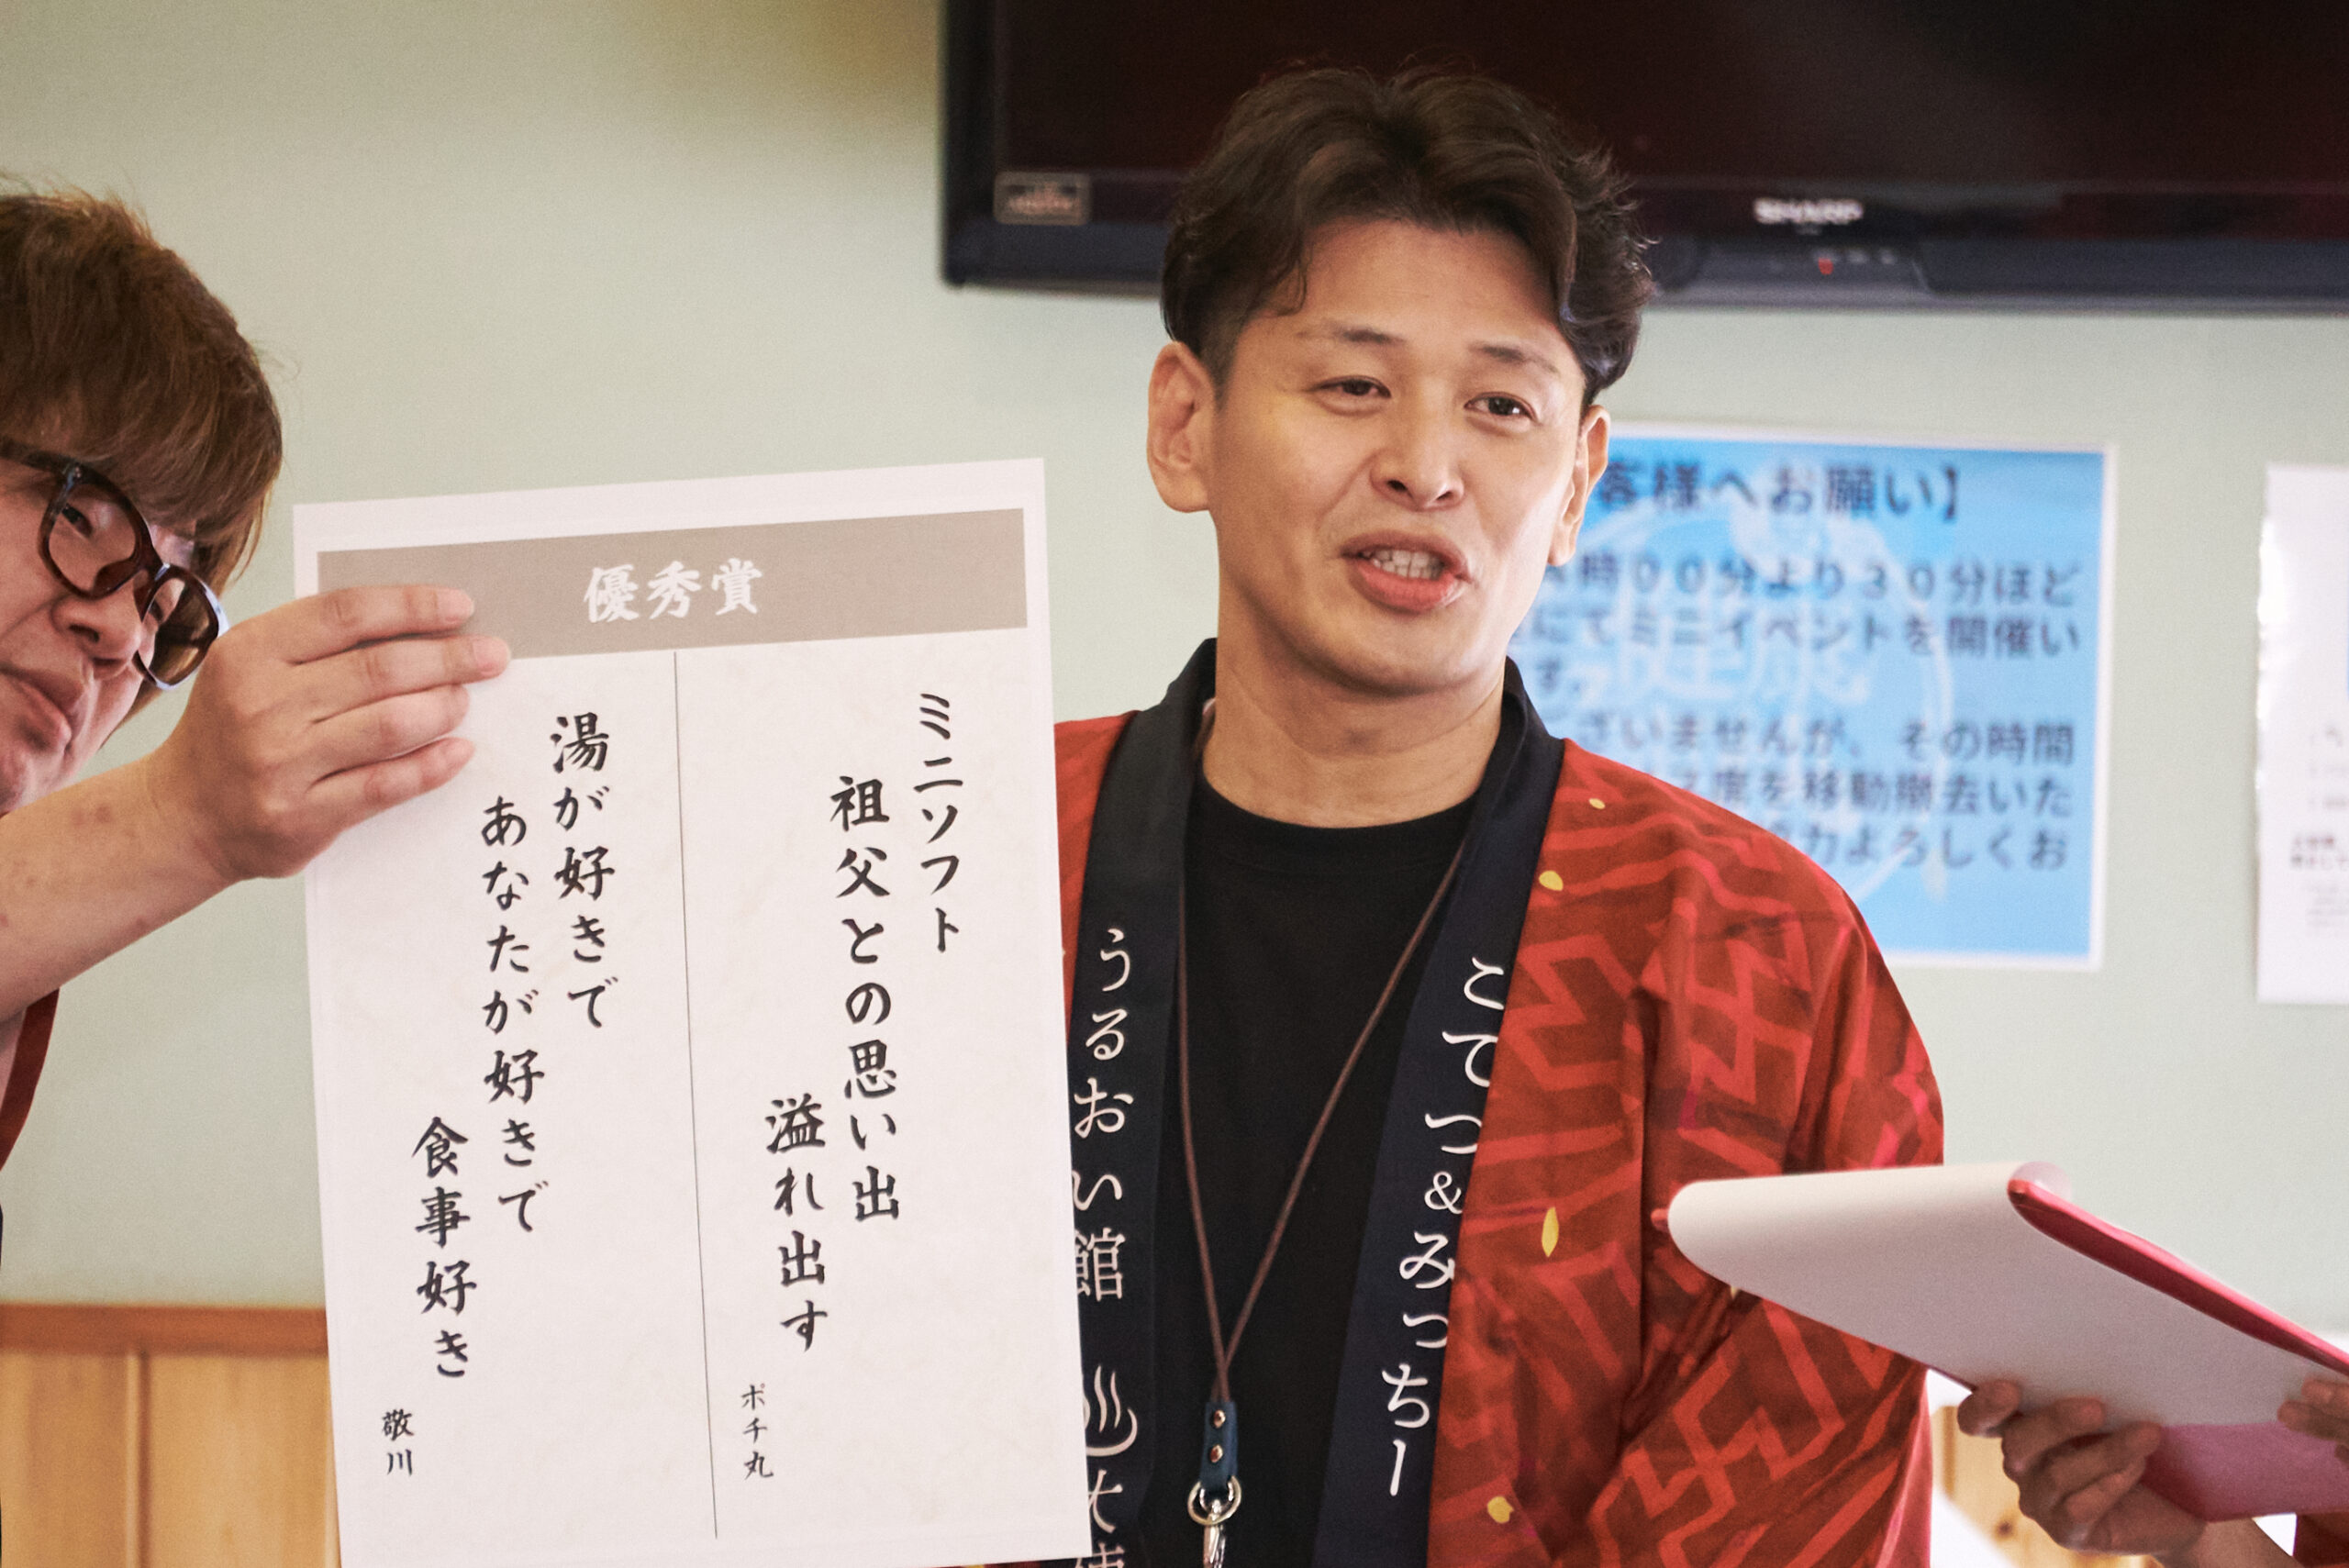 優秀賞
ミニソフト
祖父との思い出
溢れ出す
ポチ丸
湯が好きで
あなたが好きで
食事好き
敬川
うるおい館
こてつ&みっちー
SHARP
客様へお願い】
時00分より30分ほど
にてミニイベントを開催い
す。
ございませんが、その時間
度を移動撤去いた
力よろしくお